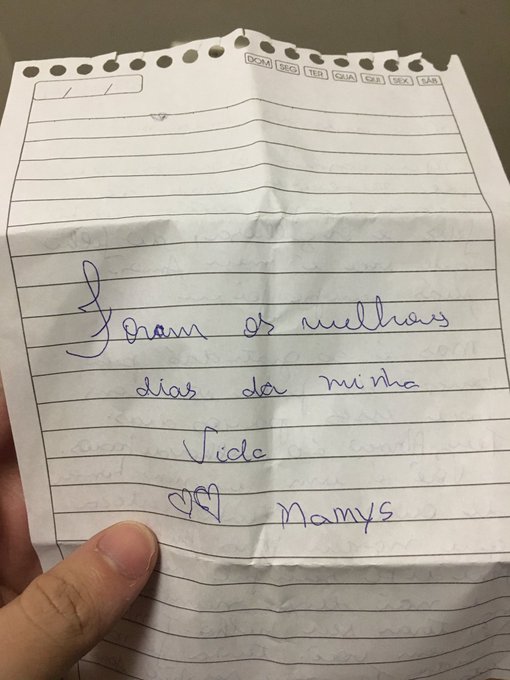 DOM SEG TER QUA QUI SEX SÁB
/ /
Foram os melhores
dias da minha
Vida
Mamys